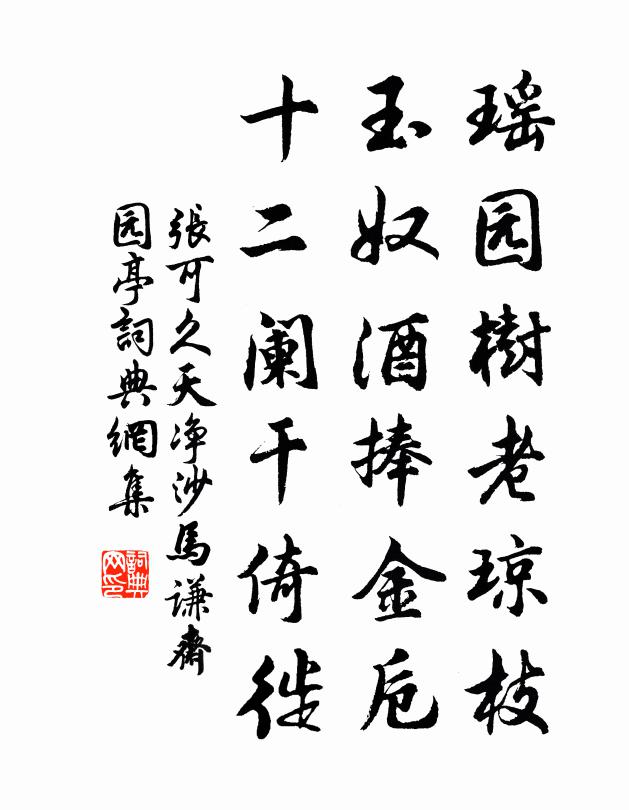 瑶园樹老琼枝
玉奴酒捧金卮
十二阑干倚徙
張可久天净沙馬谦齋
园亭詞典網集
詞典
网印